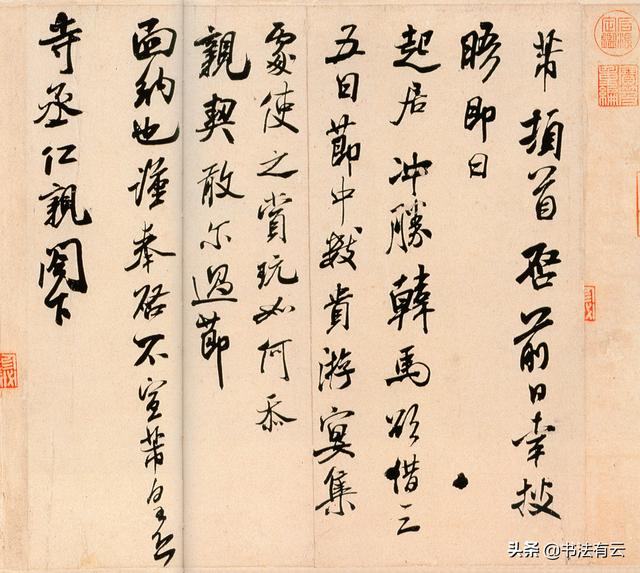 芾頓首啓前日幸披
晤即日
起居冲勝韓馬欲借三
五日節中數貴游宴集
處使之賞玩如何忝
親契敢尔過節
面納也謹奉啓不宣芾皇恐
寺丞仁親閣下
头条 @书法有云